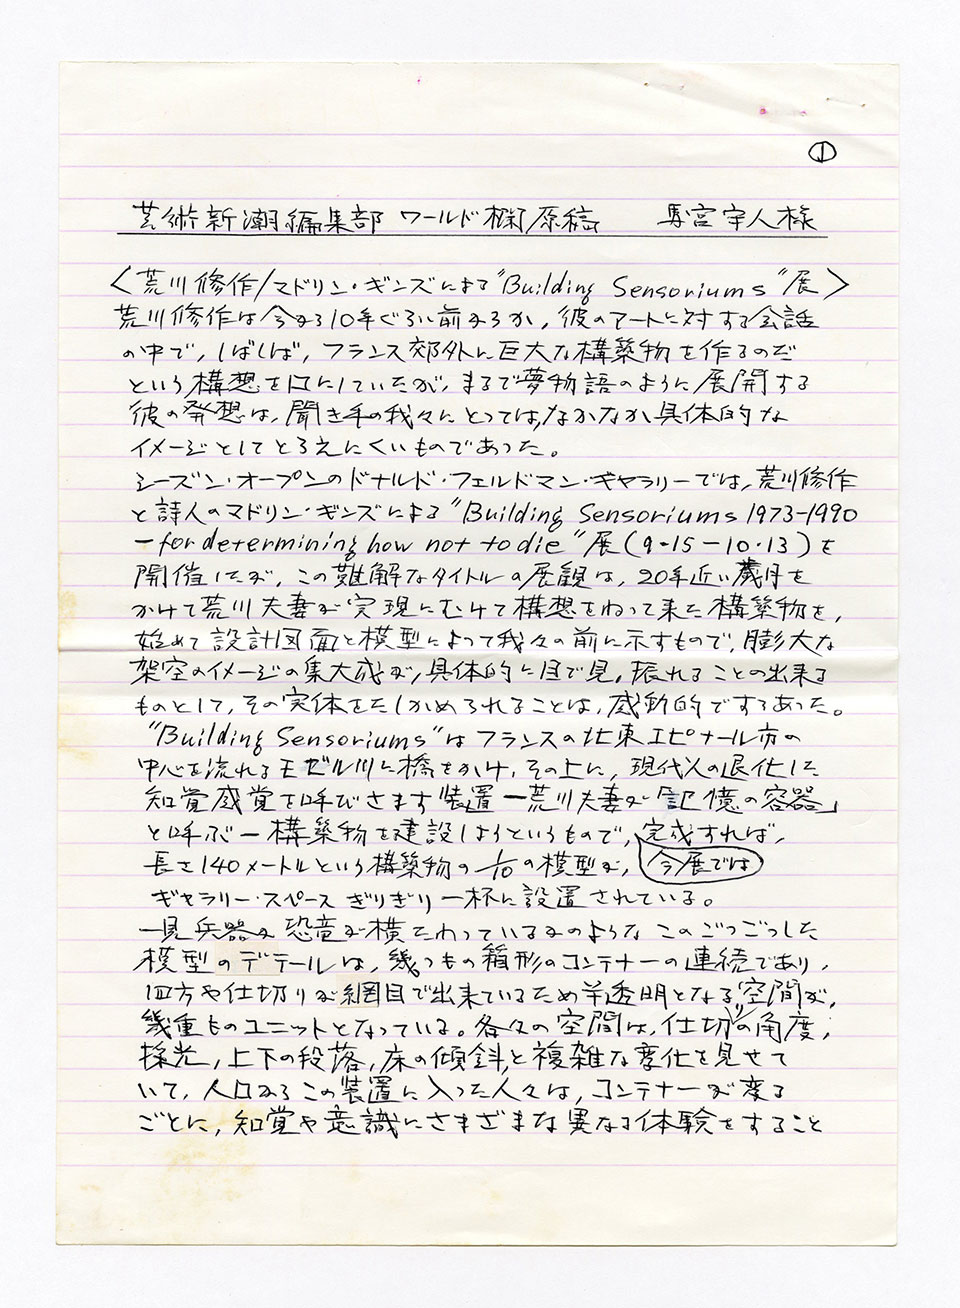 ①
芸術新潮編集部 ワールド欄原稿 馬宮宇人様
〈荒川修作/マドリン・ギンズによる"Building Sensoriums"展〉
荒川修作は今から10年ぐらい前からか，彼のアートに対する会話
の中で，しばしば，フランス郊外に巨大な構築物を作るのだ
という構想を口にしていたが，まるで夢物語のように展開する
彼の発想は，聞き手の我々にとっては，なかなか具体的な
イメージとしてとらえにくいものであった。
シーズン・オープンのドナルド・フェルドマン・ギャラリーでは，荒川修作
と詩人のマドリン・ギンズによる"Building Sensoriums 1973-1990
－for determining how not to die"展(9・15－10・13)を
開催したが，この難解なタイトルの展観は，20年近い歳月を
かけて荒川夫妻が実現にむけて構想をねって来た構築物を，
始めて設計図面と模型によって我々の前に示すもので，膨大な
架空のイメージの集大成が，具体的に目で見，振れることの出来る
ものとして，その実体をたしかめられることは，感動的ですらあった。
"Building Sensoriums"はフランスの北東エピナール市の
中心を流れるモゼル川に橋をかけ，その上に，現代人の退化した
知覚感覚を呼びさます装置－荒川夫妻が「記憶の容器」
と呼ぶ－構築物を建設しようというもので，完成すれば，
長さ140メートルという構築物の1/10の模型が，今展では
ギャラリー・スペースぎりぎり一杯に設置されている。
一見兵器か恐竜が横たわっているかのようなこのごつごつした
模型のデテールは，幾つもの箱形のコンテナーの連続であり，
四方や仕切りが網目で出来ているため半透明となる空間が，
幾重ものユニットとなっている。各々の空間は，仕切りの角度，
採光，上下の段落，床の傾斜，と複雑な変化を見せて
いて，入口からこの装置に入った人々は，コンテナーが変る
ごとに，知覚や意識にさまざまな異なる体験をすること